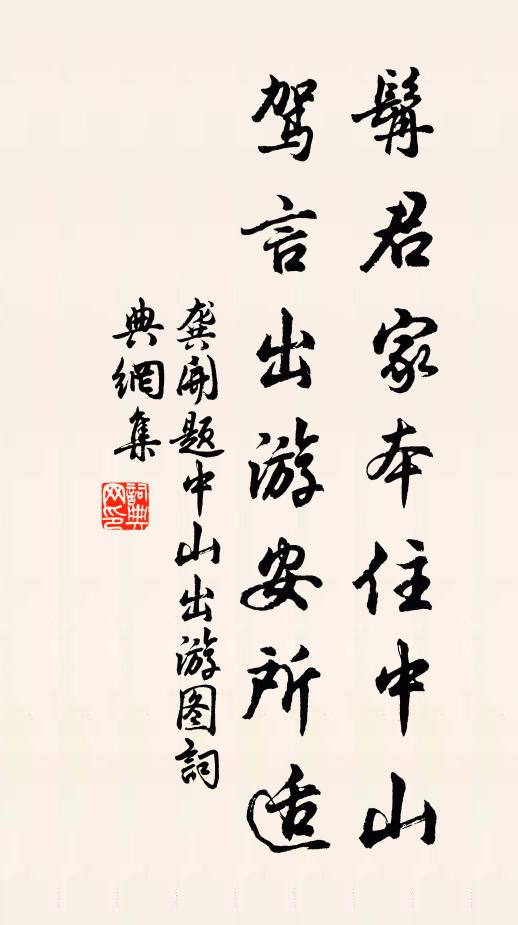 髯君家本住中山
駕言出游安所适
龔開題中山出游圖詞
典網集
詞典
网印